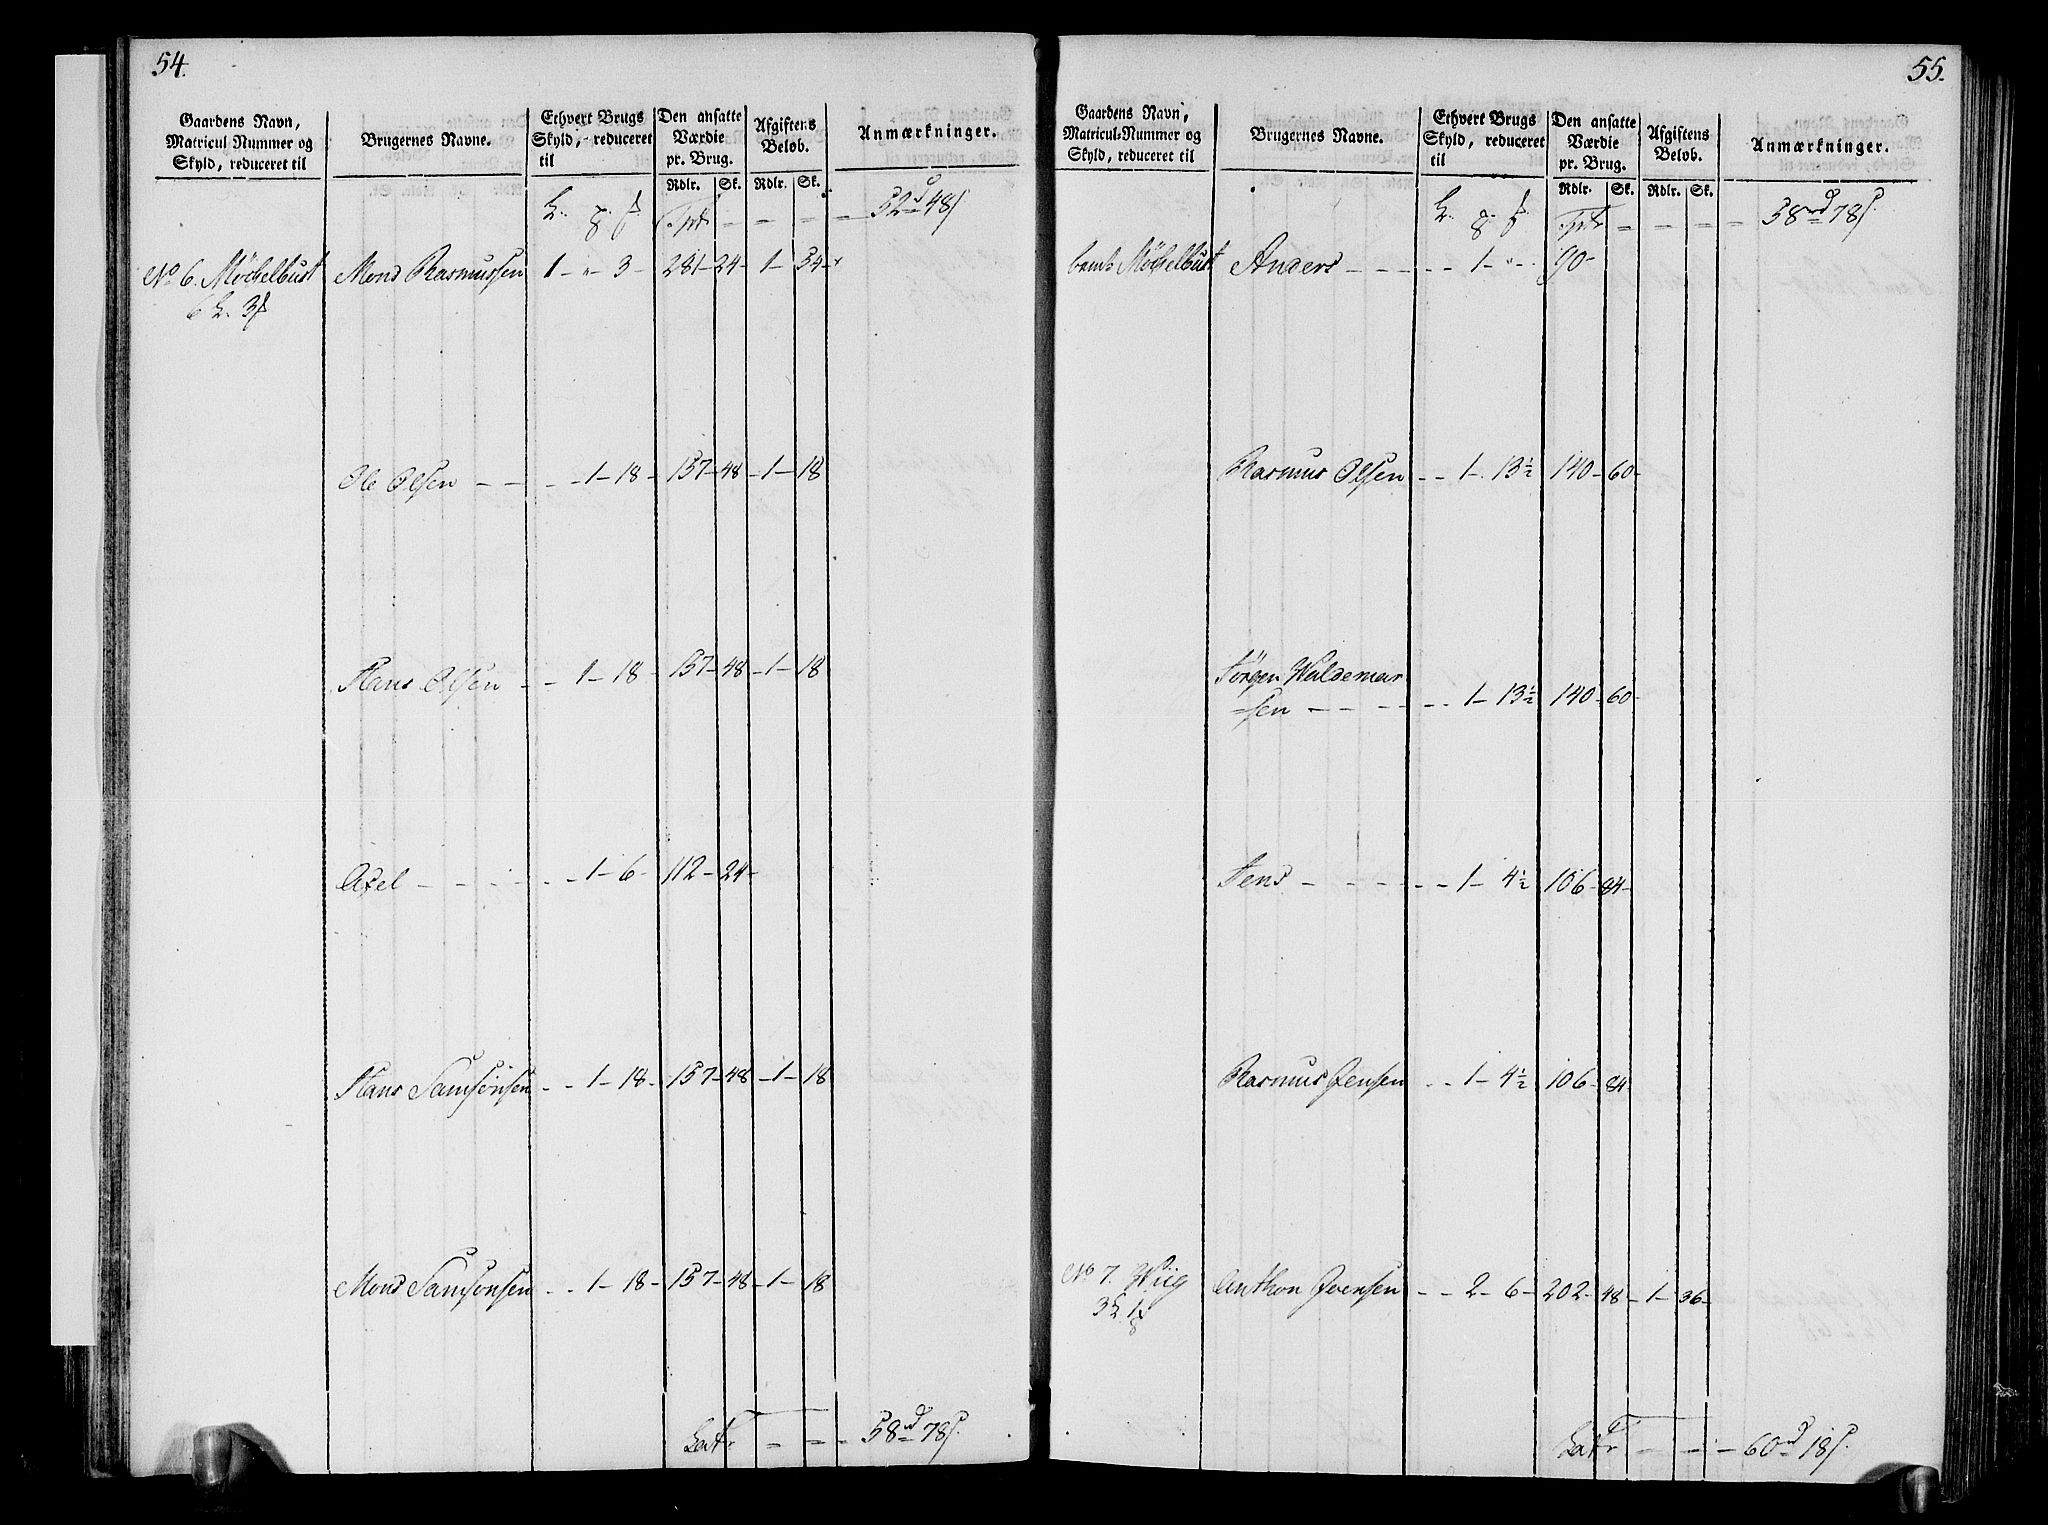 54.
Gaardens Navn, Matricul Nummer og Skyld, reduceret til | Brugernes Navne. | Ethvert Brugs Skyld, reduceret til | Den ansatte Værdie pr. Brug. | Afgiftens Beløb. | Anmærkninger.
Rdlr. Sk. Rdlr. Sk.
Tpt. – – – – 52 rd 48 s.
No 6. Möchelbust Mons Rasmussen 1 – " – 3 – 281 – 24 – 1 – 54 –
6 L. 3
Ole Olsen – – – – 1 – 18 – 157 – 48 – 1 – 18
Hans Olsen – – 1 – 18 – 157 – 48 – 1 – 18
Axel – – – – – – 1 – 6 – 112 – 24 –
Hans Samsonsen – – 1 – 18 – 157 – 48 – 1 – 18
Mons Samsonsen – – 1 – 18 – 157 – 48 – 1 – 18
Latr – – – 58 rd 78 s.
55.
Gaardens Navn, Matricul-Nummer og Skyld, reduceret til | Brugernes Navne. | Ethvert Brugs Skyld, reduceret til | Den ansatte Værdie pr. Brug. | Afgiftens Beløb. | Anmærkninger.
Rdlr. Sk. Rdlr. Sk.
Tpt. – – – – 58 rd 78 s.
Möchelbust Anders – – – – – 1 – " – 90 –
Rasmus Olsen – – 1 – 13½ 140 – 60 –
Jörgen Waldemar
=sen – – – – – – 1 – 13½ 140 – 60 –
Jens – – – – – – 1 – 4½ 106 – 84 –
Rasmus Jensen – – 1 – 4½ 106 – 84
No 7. Wiig Anthon Jensen – – 2 – 6 – 202 – 48 – 1 – 36 –
3 L. 1
Latr – – – 60 rd 18 s.